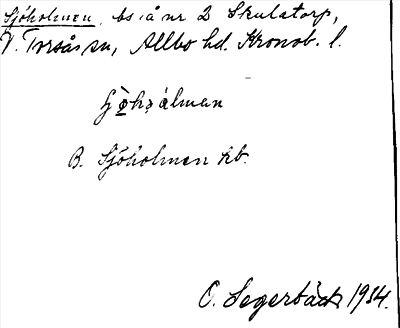 Sjöholmen, bs. å nr 2 Skulatorp,
V. Torsås sn, Allbo hd. Kronob. l.
B. Sjöholmen kb.
O. Segerbäck 1934.